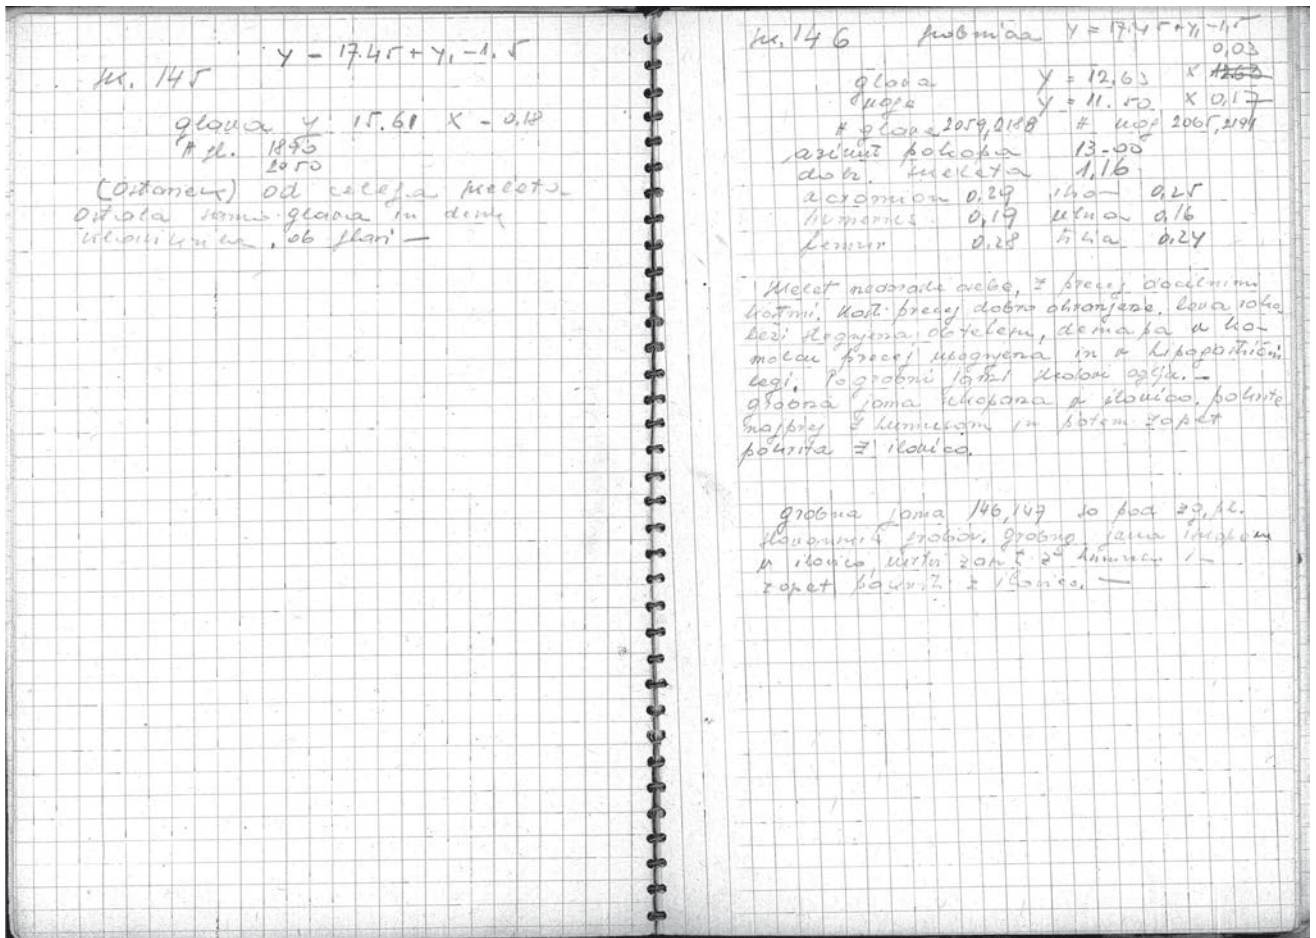 y = 17.45 + y, -1.5
sk. 145
glava y 15.61 x - 0.18
# gl. 1890
2050
(ostanek) od celega skeleta
ostala samo glava in desna
ob glavi —
sk. 146 y = 17.45 + y, -1,5
0,03
glava y = 12.63 x
noge y = 11.50 x 0,17
# glave 2059, 2188 # nog 2065, 2191
azimut pokopa 13-00
dolž. skeleta 1,16
acromion 0,29 0,25
humerus 0,19 ulna 0,16
femur 0,28 tibia 0,24
Skelet nedorasle osebe, z precej
kostmi. Kosti precej dobro ohranjene, leva roka
leži stegnjena ob telesu, desna pa v ko-
molcu precej usognjena in v
legi. Po grobni jami sledovi oglja. —
grobna jama skopana v ilovico, pokrita
najprej z humusom in potem zopet
pokrita z ilovico.
grobna jama 146, 147 so pod
grobov. grobna jama skopana
v ilovico, z humusom in
zopet z ilovico. —